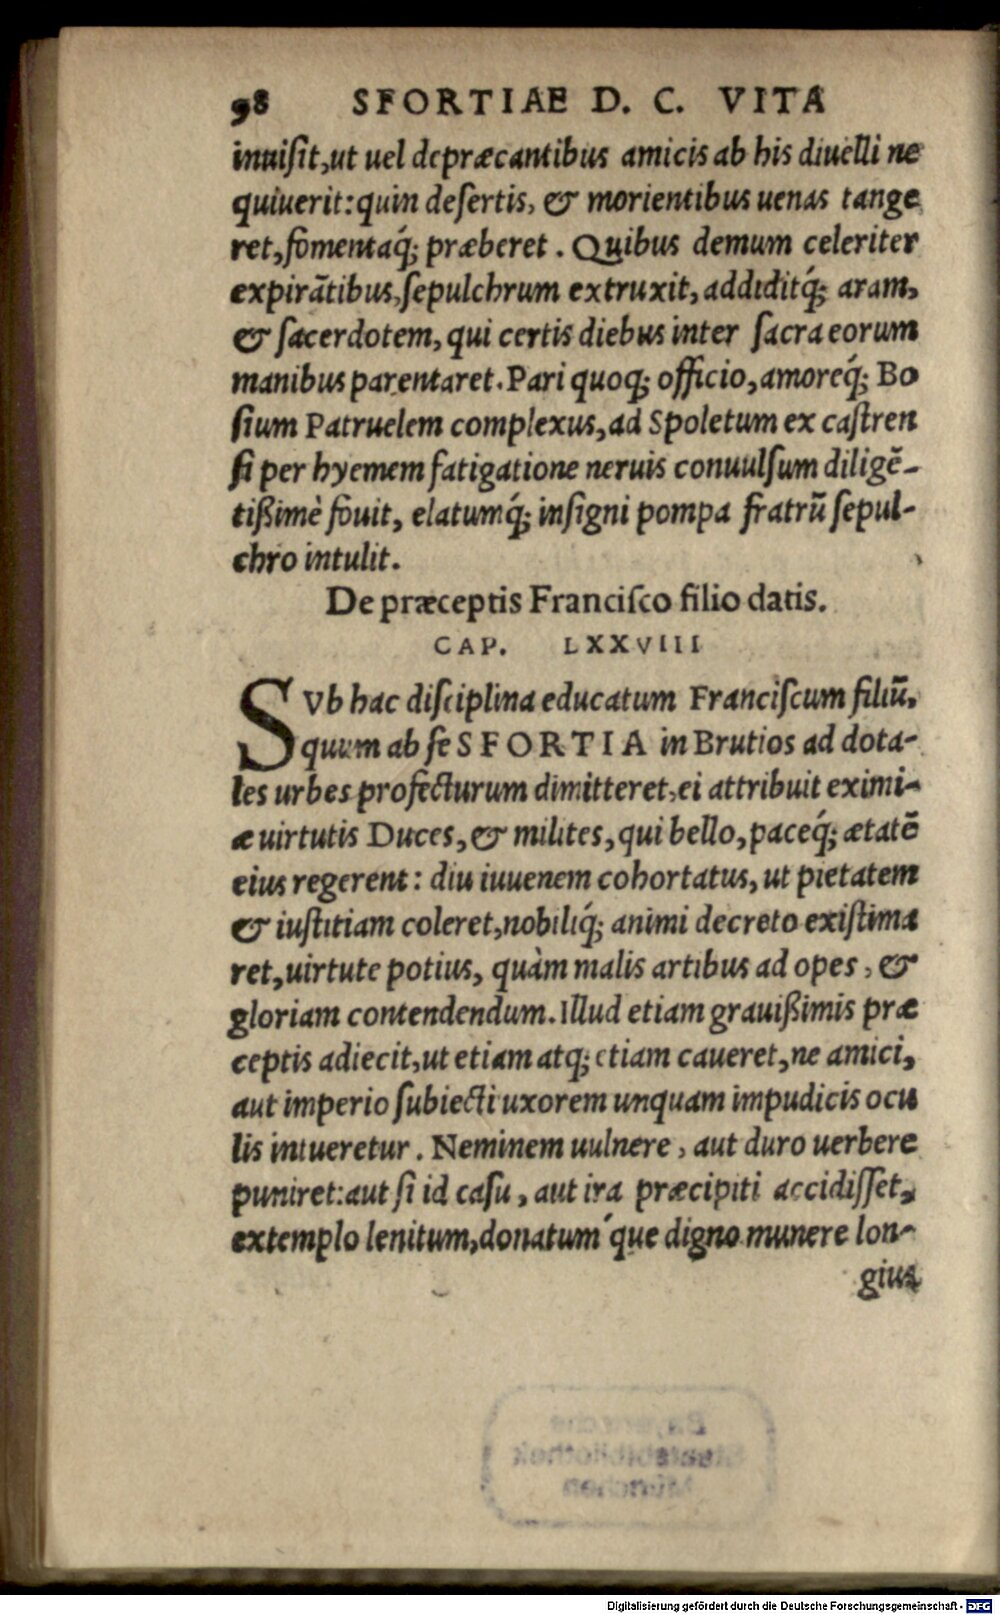 98 SFORTIAE D. C. VITA
inuiſit, ut uel depræcantibus amicis ab his diuelli ne
quiuerit: quin deſertis, & morientibus uenas tange
ret, fomentaq́; præberet. Quibus demum celeriter
expirātibus, ſepulchrum extruxit, addiditq́; aram,
& ſacerdotem, qui certis diebus inter ſacra eorum
manibus parentaret. Pari quoq; officio, amoreq́; Bo
ſium Patruelem complexus, ad Spoletum ex caſtren
ſi per hyemem fatigatione neruis conuulſum diligē-
tißimè fouit, elatumq́; inſigni pompa fratrū ſepul-
chro intulit.
De præceptis Franciſco filio datis.
CAP. LXXVIII
SVb hac diſciplina educatum Franciſcum filiū,
quum ab ſe SFORTIA in Brutios ad dota-
les urbes profecturum dimitteret, ei attribuit eximi-
æ uirtutis Duces, & milites, qui bello, paceq́; ætatē
eius regerent: diu iuuenem cohortatus, ut pietatem
& iuſtitiam coleret, nobiliq́; animi decreto exiſtima
ret, uirtute potius, quàm malis artibus ad opes, &
gloriam contendendum. Illud etiam grauißimis præ
ceptis adiecit, ut etiam atq; etiam caueret, ne amici,
aut imperio ſubiecti uxorem unquam impudicis ocu
lis intueretur. Neminem uulnere, aut duro uerbere
puniret: aut ſi id caſu, aut ira præcipiti accidiſſet,
extemplo lenitum, donatuḿque digno munere lon-
gius
Bayerische
Staatsbibliothek
München
Digitalisierung gefördert durch die Deutsche Forschungsgemeinschaft - DFG